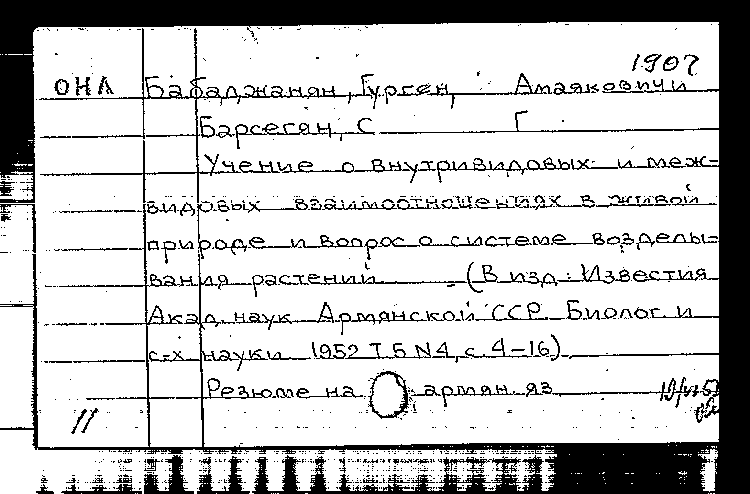 1907
ОНЛ Бабаджанян, Гурген, Амаякович и
Барсегян, С Г
Учение о внутривидовых и меж=
видовых взаимоотношениях в живой
природе и вопрос о системе возделы=
вания растений = (В изд: Известия
Акад наук Армянской ССР Биолог и
с=х науки 1952 Т 5 N4, с. 4-16)
Резюме на армян. яз
11